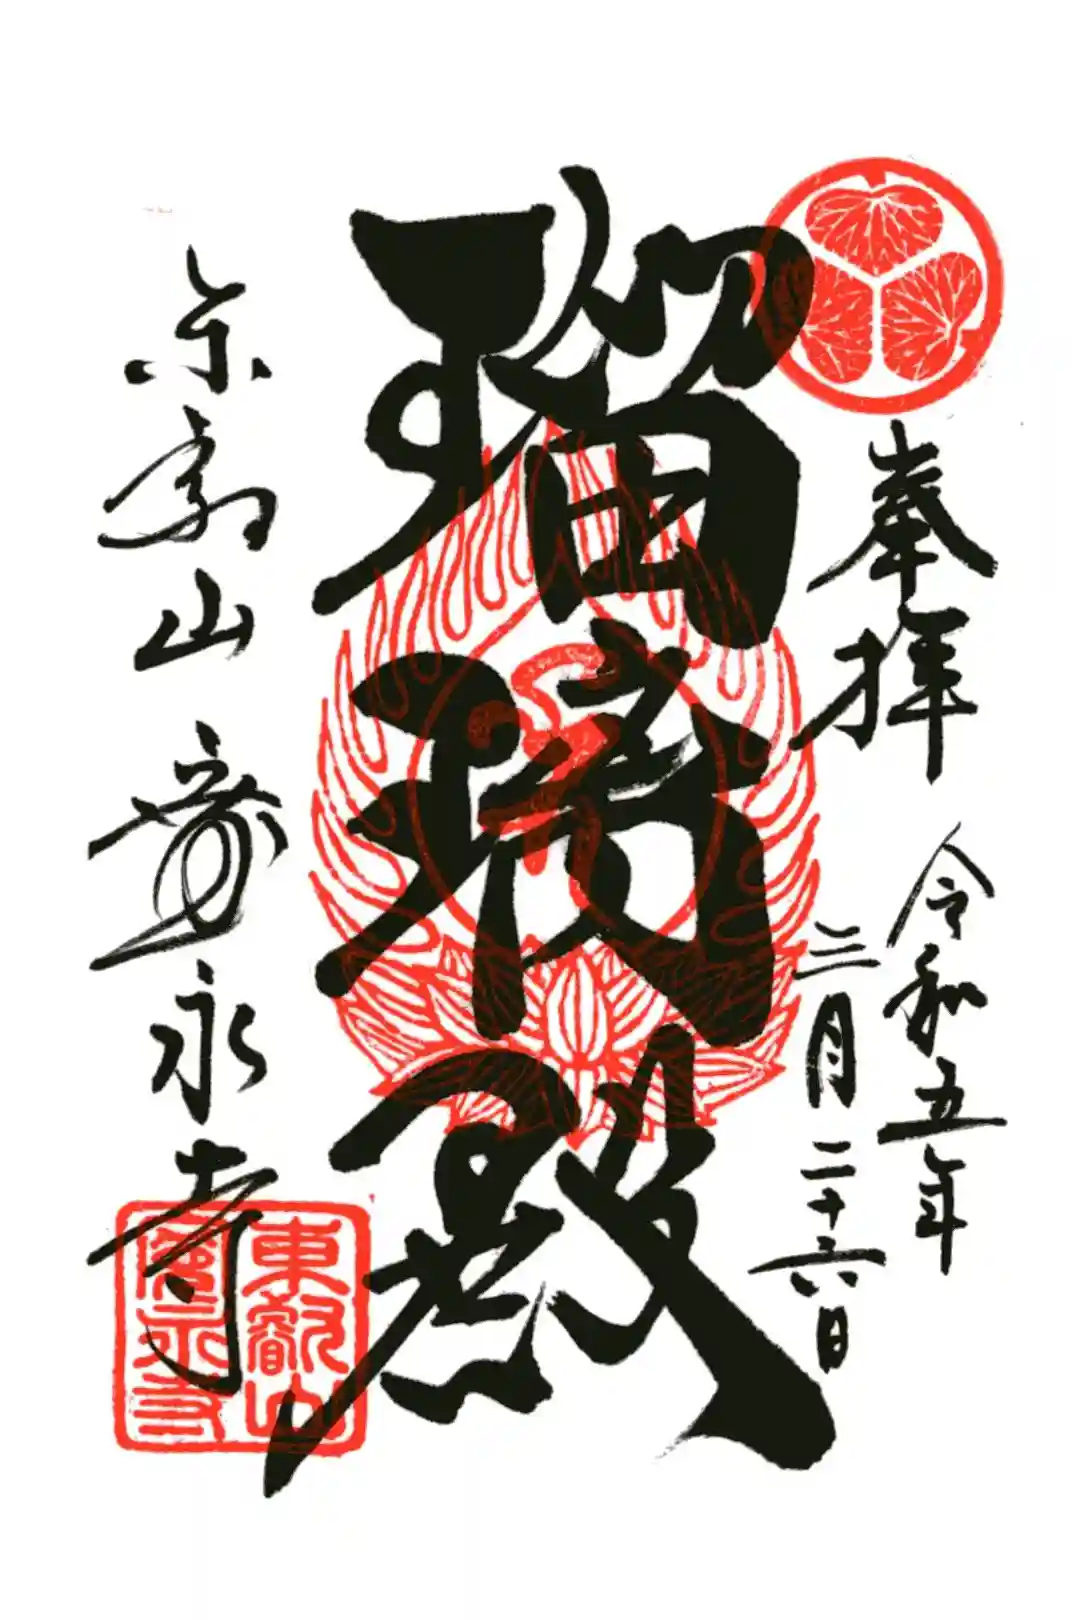 奉拝
令和五年
三月二十六日
瑠璃殿
東叡山 寛永寺
東叡山
寛永寺